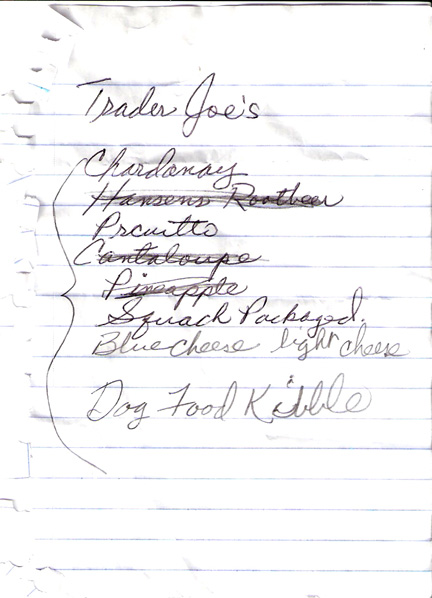 Trader Joe's
Chardonay
Hansens Rootbeer
Prcuitto
Cantaloupe
Pineapple
Squach Packaged.
Blue cheese light cheese
Dog Food Kibble